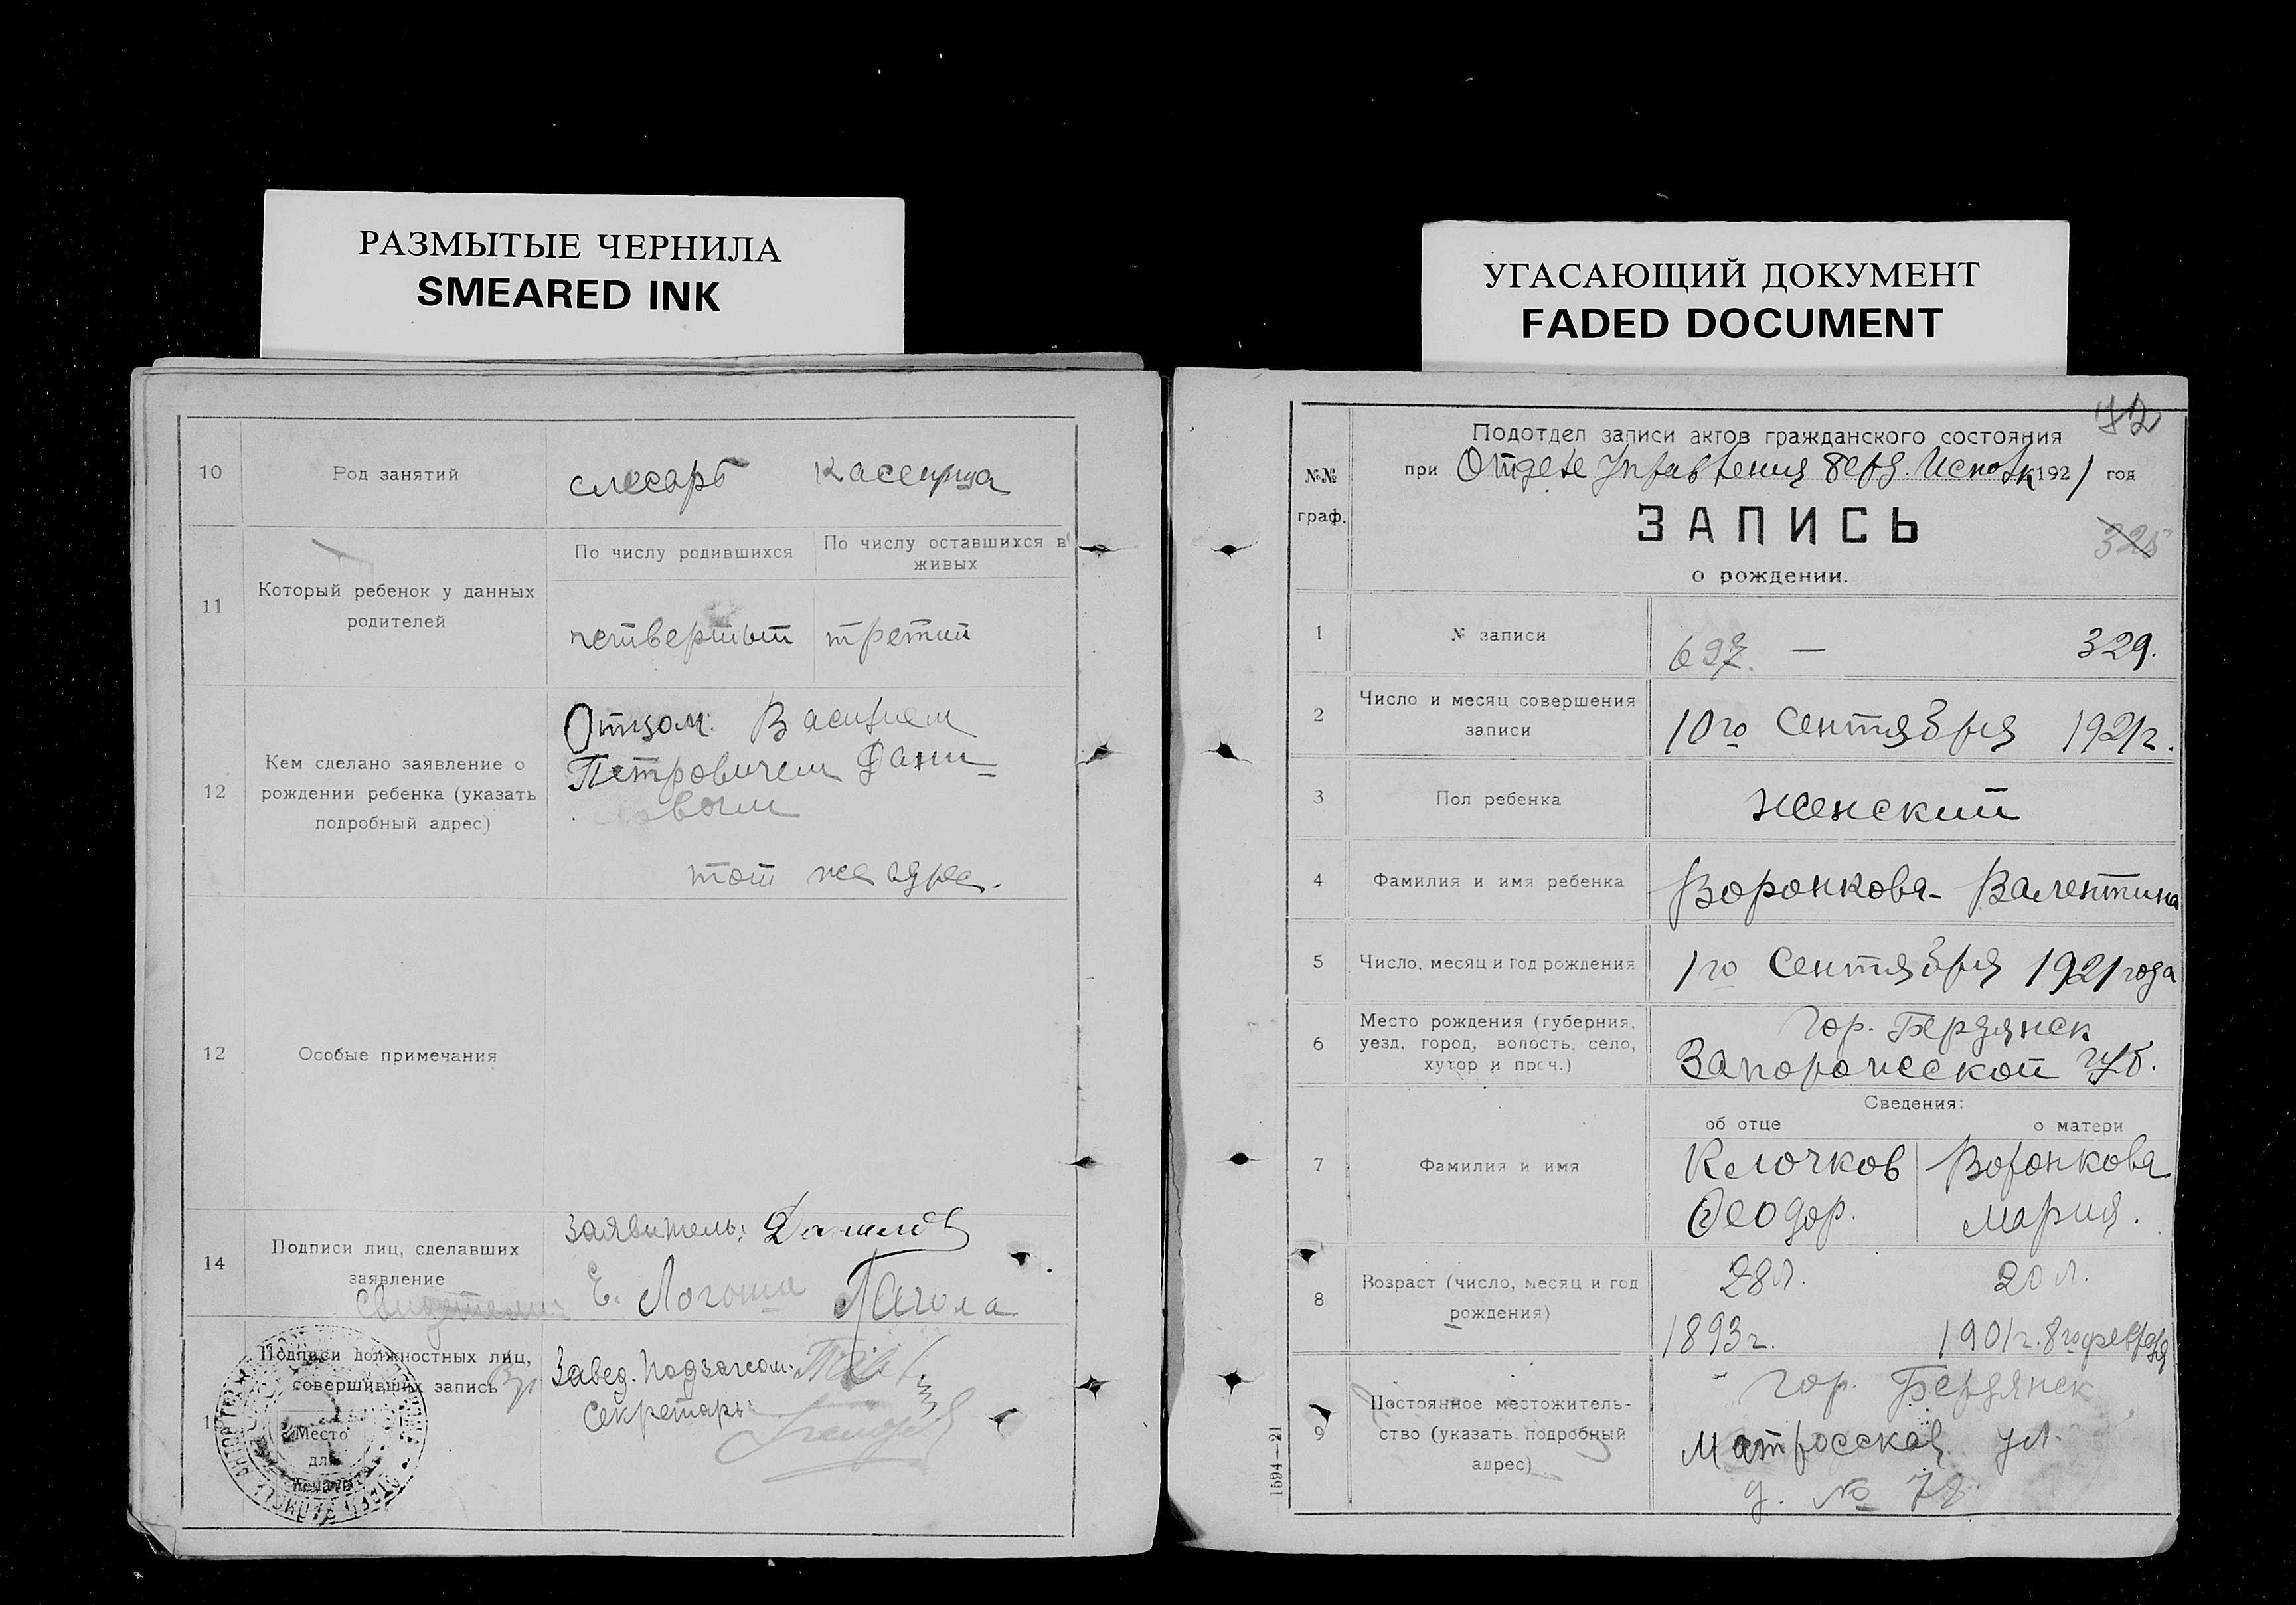 РАЗМЫТЫЕ ЧЕРНИЛА
SMEARED INK
10
Род занятий
слесарь кассирша
11
Который ребенок у данных
родителей
По числу родившихся
По числу оставшихся в
живых
четвертый
третий
12
Кем сделано заявление о
рождении ребенка (указать
подробный адрес)
Отцом Василием
Петровичем Дани-
ловым
тот же адрес.
12
Особые примечания
14
Подписи лиц, сделавших
заявление
свидетели:
заявитель: Данилов
Е.
Подписи должностных лиц,
совершивших запись
Место
для
печати
Завед. Подзагсом:
Секретарь:
УГАСАЮЩИЙ ДОКУМЕНТ
FADED DOCUMENT
№№
граф.
Подотдел записи актов гражданского состояния
при Отделе Управления Берд. Исполк 1921 год
ЗАПИСЬ
325
о рождении.
1
№ записи
329.
2
Число и месяц совершения
записи
10го Сентября 1921г.
3
Пол ребенка
женский
4
Фамилия и имя ребенка
Воронкова- Валентина
5
Число, месяц и год рождения
1го Сентября 1921 года
6
Место рождения (губерния,
уезд, город, волость, село,
хутор и проч.)
гор. Бердянск
Запорожской губ.
7
Фамилия и имя
Сведения:
об отце
о матери
Клочков
Феодор.
Воронкова
Мария.
8
Возраст (число, месяц и год
рождения)
28 л.
1893 г.
20 л.
1901 г. 8го февраля
9
Постоянное местожитель-
ство (указать подробный
адрес)
гор. Бердянск
Матросская ул.
д. №
1594—21